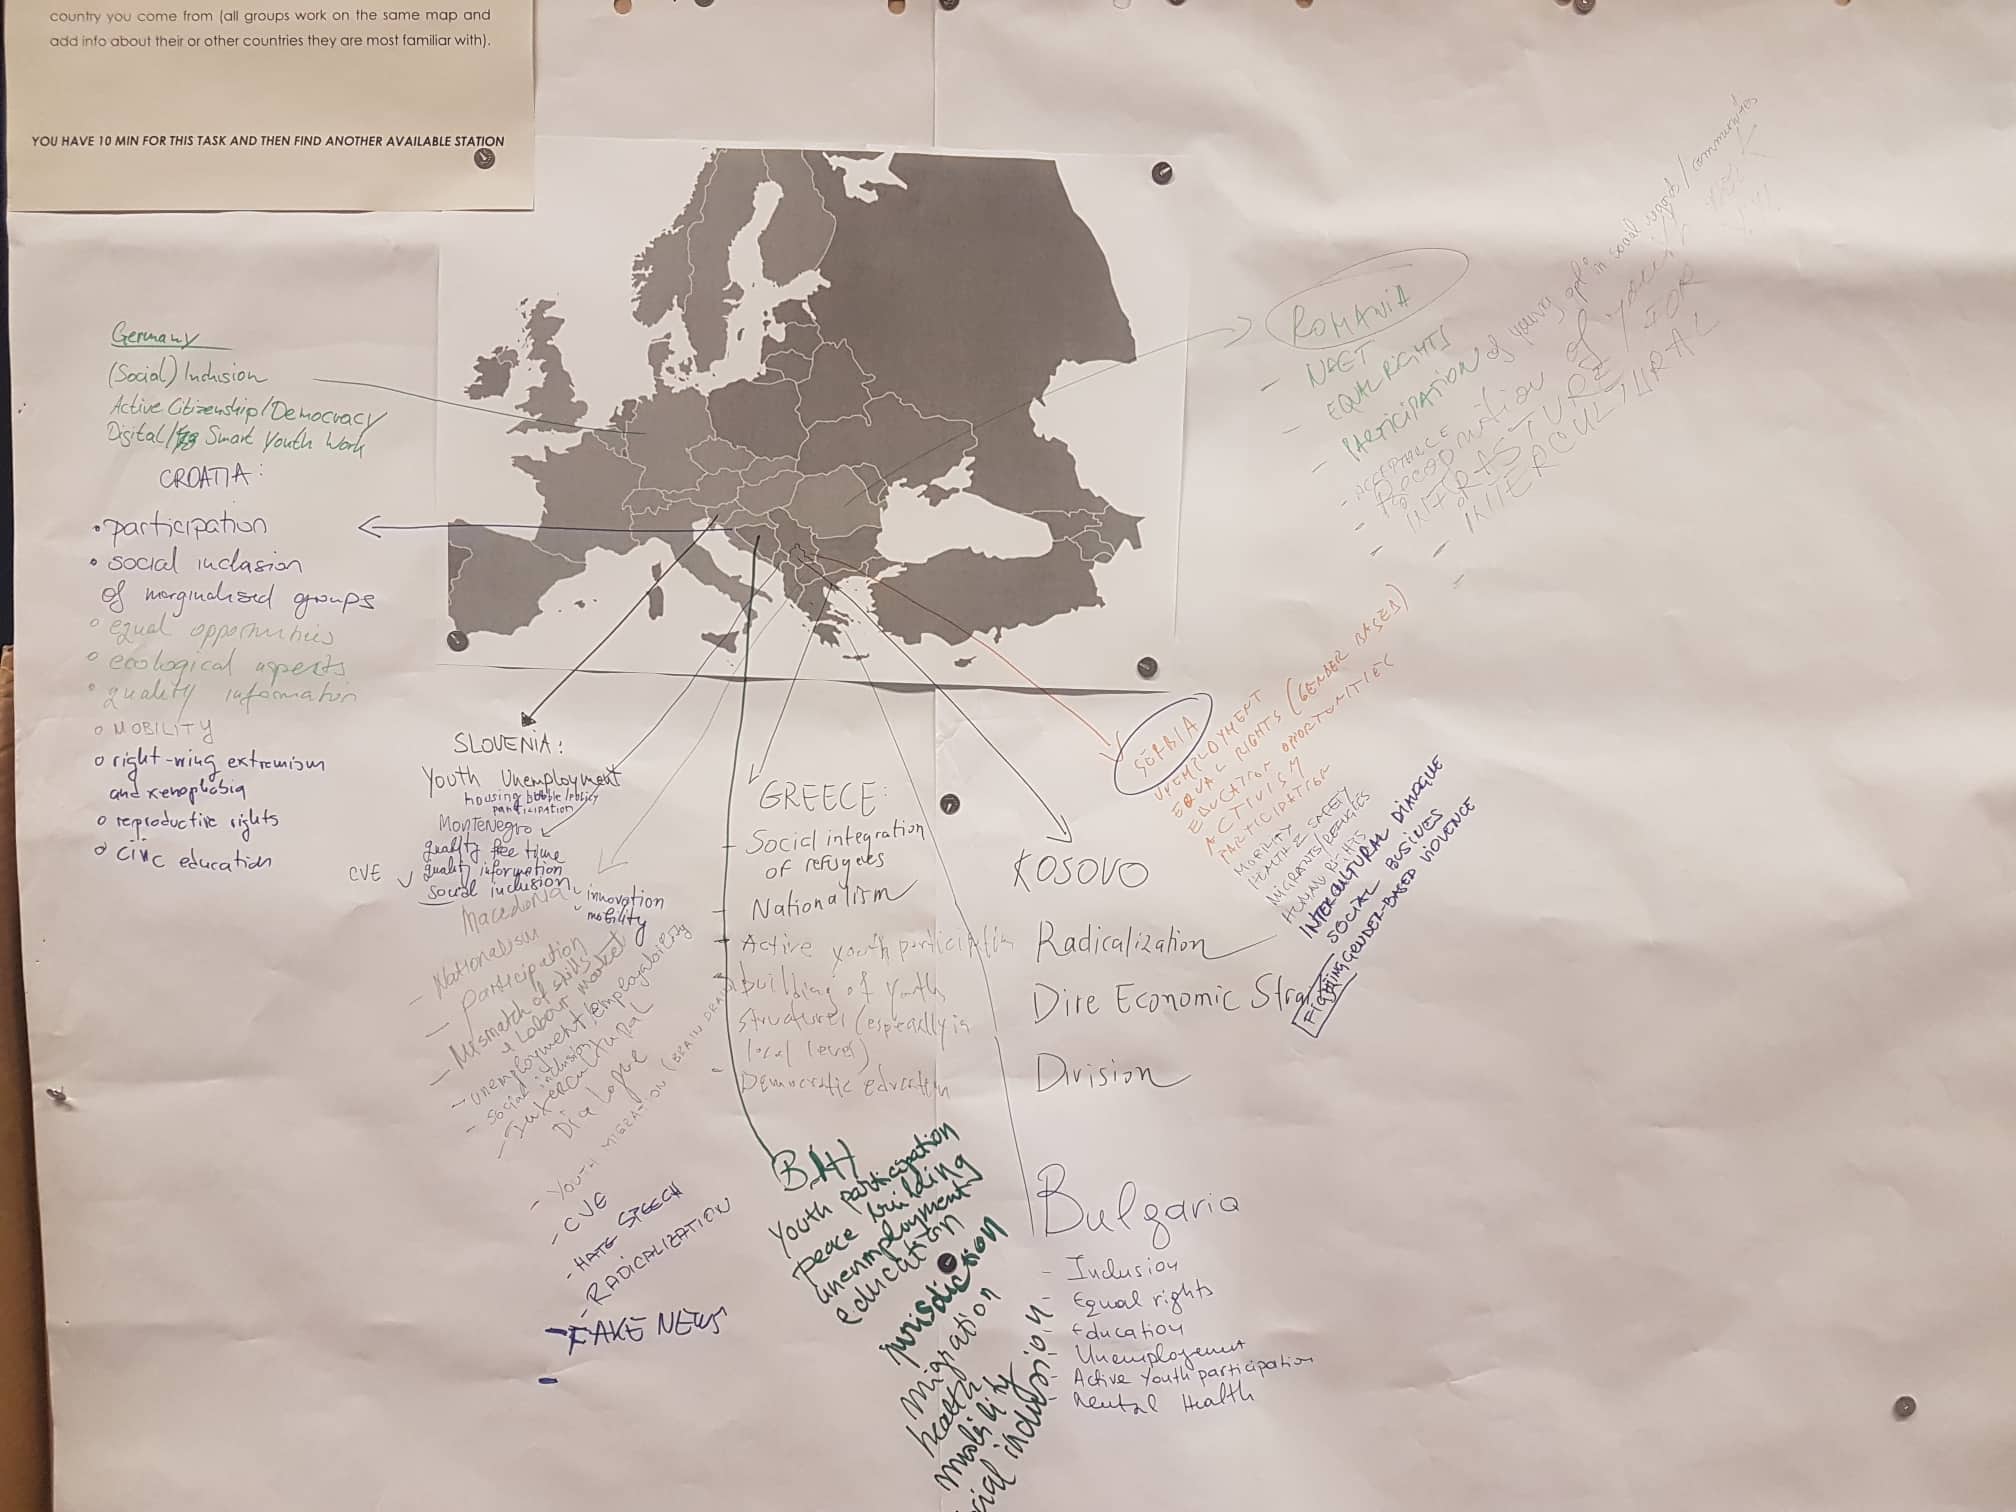 country you come from (all groups work on the same map and
add info about their or other countries they are most familiar with).
YOU HAVE 10 MIN FOR THIS TASK AND THEN FIND ANOTHER AVAILABLE STATION
Germany
(Social) Inclusion
Active Citizenship/Democracy
Digital/ Smart Youth Work
CROATIA:
• participation
• social inclusion
of marginalised groups
° equal opportunities
° ecological aspects
° quality information
° MOBILITY
° right-wing extremism
and xenophobia
° reproductive rights
° civic education
SLOVENIA:
Youth Unemployment
housing bubble/policy
participation
Montenegro
quality fee time
CVE
quality information
social inclusion
innovation
mobility
Macedonia
- Nationalism
- participation
- Mismatch of skills
& Labour market
- unemployment/employability
- social inclusion
- Intercultural
Dialogue
- YOUTH MIGRATION (BRAIN DRAIN)
- CVE
- HATE SPEECH
- RADICALIZATION
- FAKE NEWS
-
GREECE:
- Social integration
of refugees
- Nationalism
- Active youth participation
- building of youth
structures (especially in
local level)
- Democratic education
B.H
Youth participation
peace building
unemployment
education
jurisdiction
migration
health
mobility
cial inclussion
KOSOVO
Radicalization
Dire Economic
Division
Bulgaria
- Inclusion
- Equal rights
- Education
- Unemployement
- Active Youth participation
- Mental Health
SERBIA
UNEMPLOYMENT
EQUAL RIGHTS (GENDER BASED)
EDUCATION OPPORTUNITIES
ACTIVISM
PARTICIPATION
MOBILITY
HEALTH & SAFETY
MIGRANTS/REFUGIES
HUMAN RIGHTS
INTERCULTURAL DIALOGUE
SOCIAL BUSINES
Fighting GENDER-BASED VIOLENCE
ROMANIA
- NEET
- EQUAL RIGHTS
- PARTICIPATION of young ople in social / communites
- ACCEPTANCE
- Recognition of youth
- INFRASTURE FOR
- INTERCULTURAL